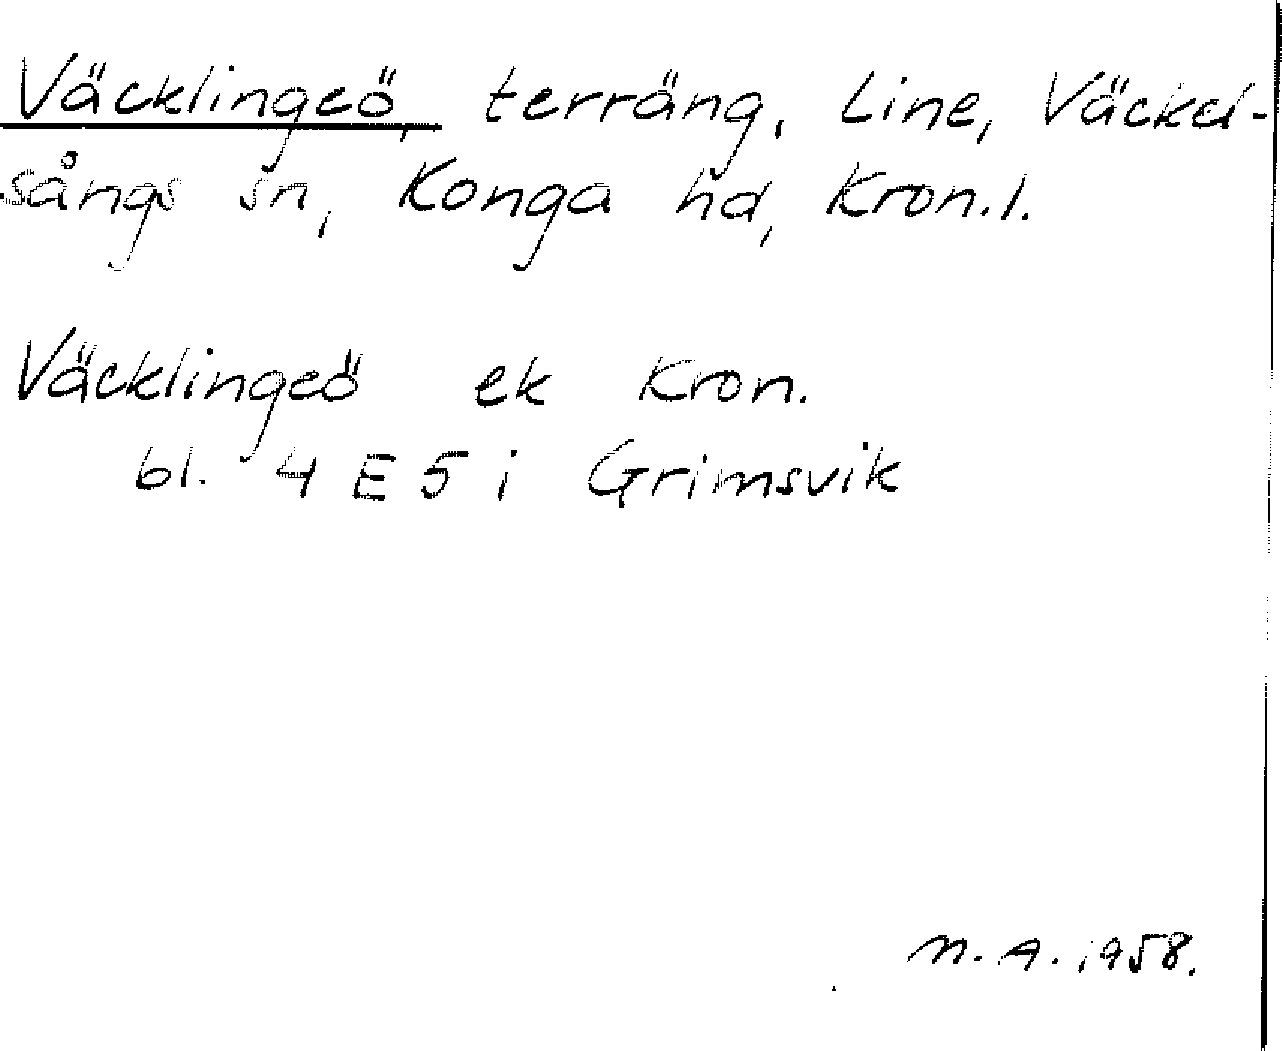 Väcklingeö, terräng, Line, Väckel-
sångs sn, Konga hd, Kron.l.
Väcklingeö ek Kron.
bl. 4 E 5 i Grimsvik
M.A. 1958.